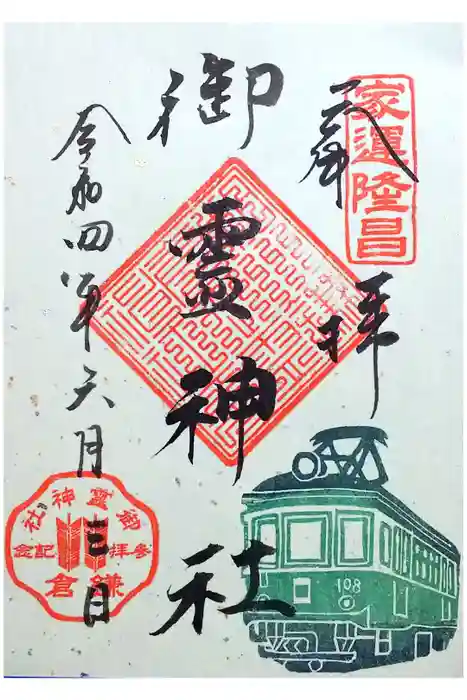 家運隆昌
奉拝
御靈神社
令和四年六月三日
御靈神社
參拝記念
鎌倉
108